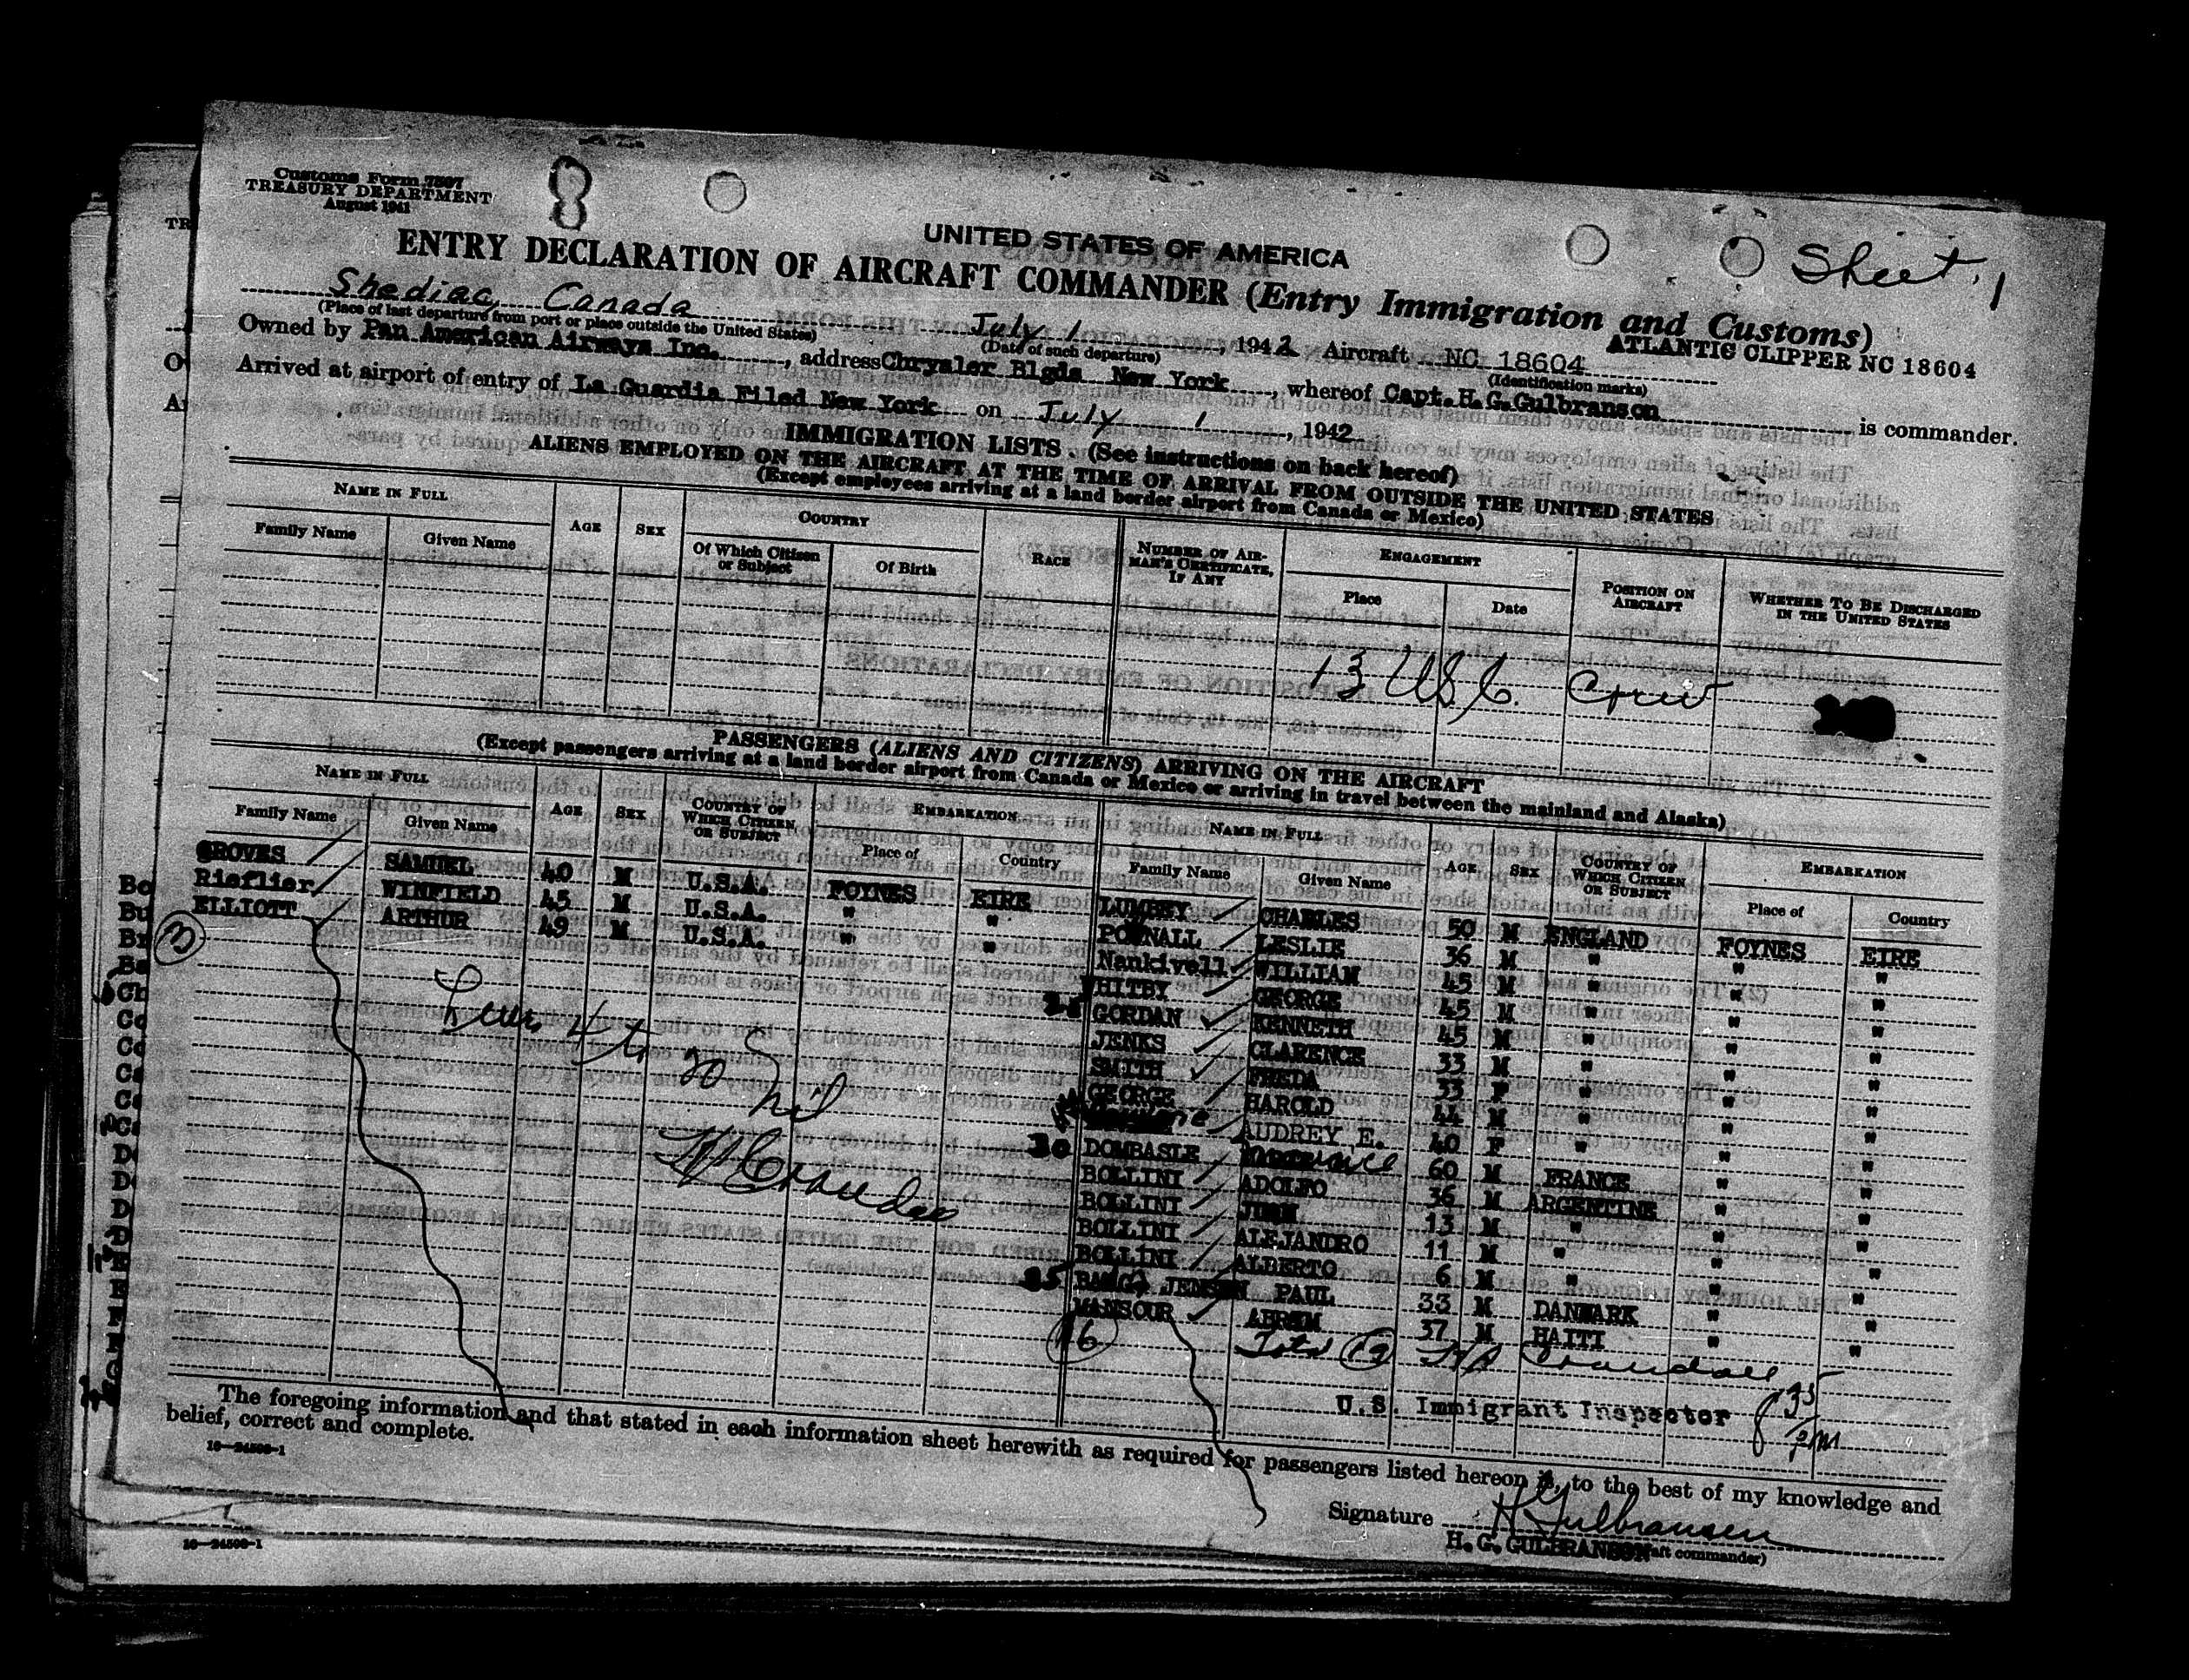 Customs Form 7507
TREASURY DEPARTMENT
August 1941
8
Sheet 1
UNITED STATES OF AMERICA
ENTRY DECLARATION OF AIRCRAFT COMMANDER (Entry Immigration and Customs)
ATLANTIC CLIPPER NC 18604
Shediac, Canada July 1, 1942 Aircraft NC 18604
(Place of last departure from port or place outside the United States) (Date of such departure) (Identification marks)
Owned by Pan American Airways Inc., address Chrysler Blgds New York, whereof Capt. H. G. Gulbranson is commander.
Arrived at airport of entry of La Guardia Filed New York on July 1, 1942
IMMIGRATION LISTS. (See instructions on back hereof)
ALIENS EMPLOYED ON THE AIRCRAFT AT THE TIME OF ARRIVAL FROM OUTSIDE THE UNITED STATES
(Except employees arriving at a land border airport from Canada or Mexico)
NAME IN FULL AGE SEX COUNTRY RACE NUMBER OF AIRMAN'S CERTIFICATE, IF ANY ENGAGEMENT POSITION ON AIRCRAFT WHETHER TO BE DISCHARGED IN THE UNITED STATES
Family Name Given Name Of Which Citizen or Subject Of Birth Place Date
13 USC. Crew
PASSENGERS (ALIENS AND CITIZENS) ARRIVING ON THE AIRCRAFT
(Except passengers arriving at a land border airport from Canada or Mexico or arriving in travel between the mainland and Alaska)
NAME IN FULL AGE SEX COUNTRY OF WHICH CITIZEN OR SUBJECT EMBARKATION
Family Name Given Name Place of Country
GROVES SAMUEL 40 M U.S.A. FOYNES EIRE
Rieflier WINFIELD 45 M U.S.A. " "
ELLIOTT ARTHUR 49 M U.S.A. " "
3
Lines 4 to 20 nil
NAME IN FULL AGE SEX COUNTRY OF WHICH CITIZEN OR SUBJECT EMBARKATION
Family Name Given Name Place of Country
LUMBBY CHARLES 50 M ENGLAND FOYNES EIRE
POWNALL LESLIE 36 M " " "
Nankivell WILLIAM 45 M " " "
WHITBY GEORGE 45 M " " "
GORDAN KENNETH 45 M " " "
JENKS CLARENCE 33 M " " "
SMITH FREDA 33 F " " "
GEORGE HAROLD 44 M " " "
AUDREY E. 40 F " " "
30 DOMBASLE 60 M FRANCE " "
BOLLINI ADOLFO 36 M ARGENTINE " "
BOLLINI JUAN 13 M " " "
BOLLINI ALEJANDRO 11 M " " "
BOLLINI ALBERTO 6 M " " "
35 BANG JENSEN PAUL 33 M DANMARK " "
MANSOUR 37 M HAITI " "
16 Total 19 Crandall
U.S. Immigrant Inspector 8 35 PM
The foregoing information and that stated in each information sheet herewith as required for passengers listed hereon is, to the best of my knowledge and
belief, correct and complete.
16—24506-1
Signature H G Gulbransen
H. G. GULBRANSON (Aircraft commander)
16—24506-1